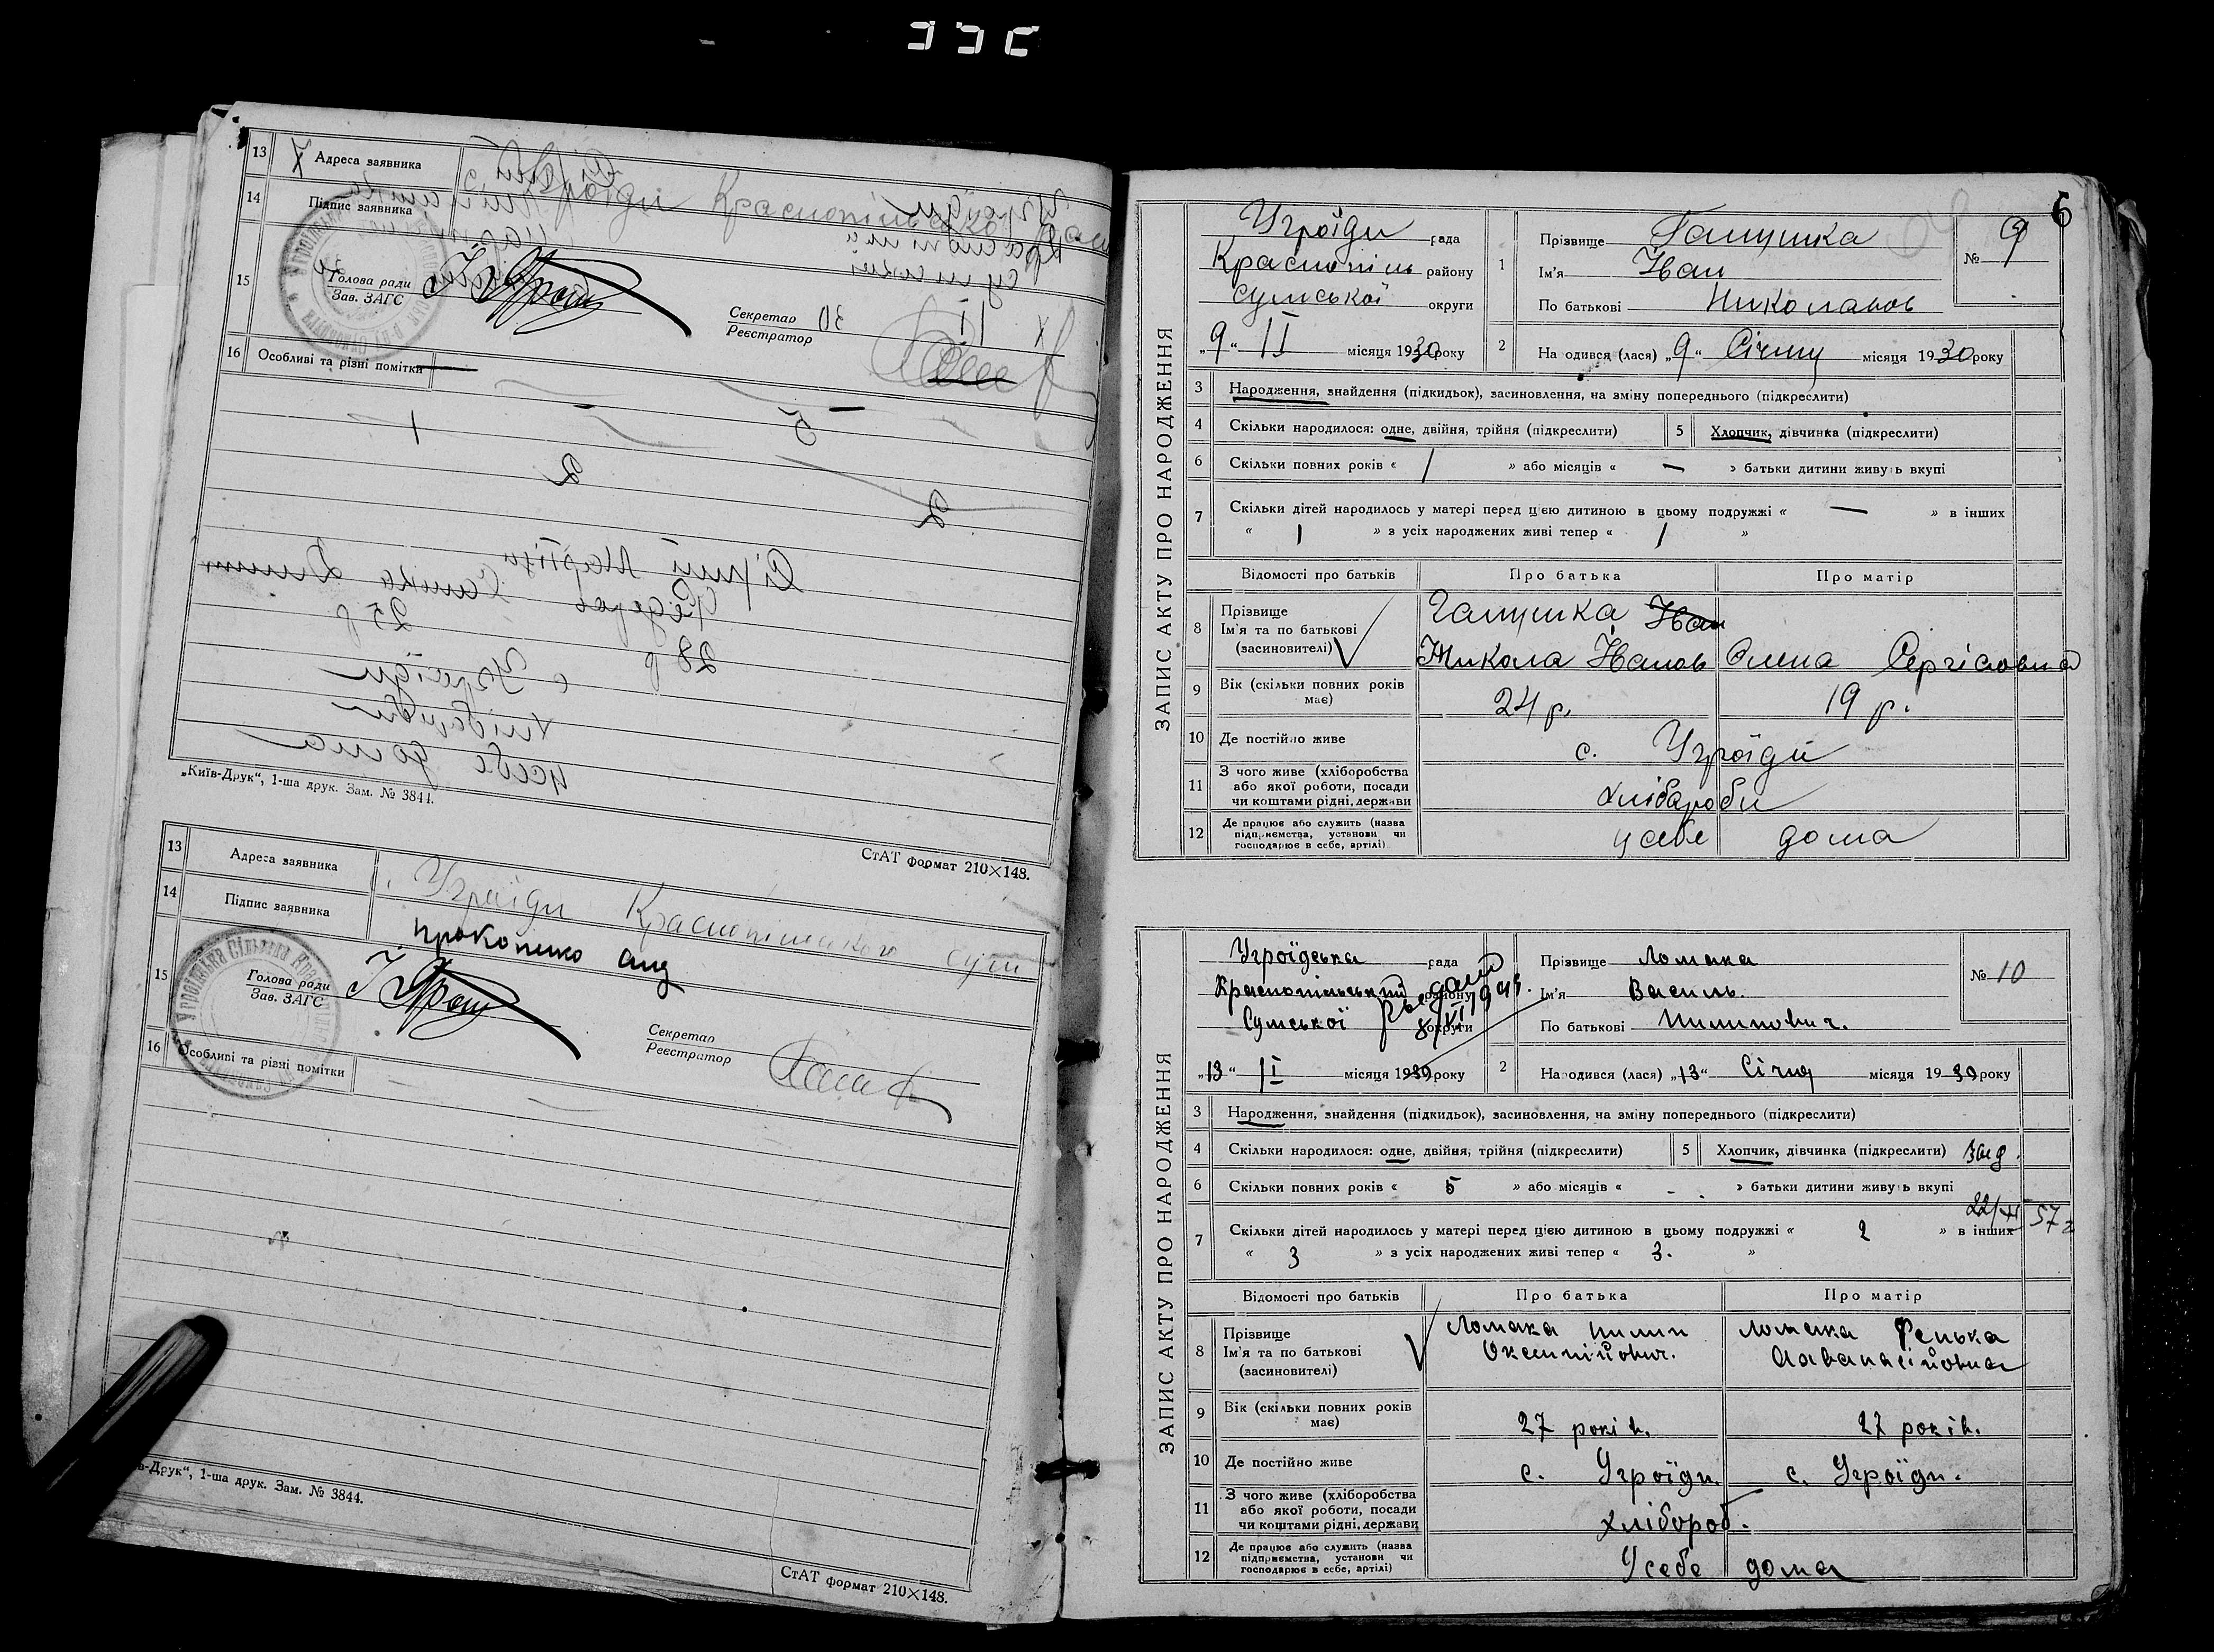 13 Адреса заявника Угроїди Краснопільськ
14 Підпис заявника
15 Голова ради
Зав. ЗАГС
Секретар
Реєстратор
16 Особливі та різні помітки
„Київ-Друк“, 1-ша друк. Зам. № 3844.
СтАТ формат 210×148.
13 Адреса заявника Угроїди Краснопільського Сум
14 Підпис заявника Прокопенко
15 Голова ради
Зав. ЗАГС
Секретар
Реєстратор
16 Особливі та різні помітки
в-Друк“, 1-ша друк. Зам. № 3844.
СтАТ формат 210×148.
6
ЗАПИС АКТУ ПРО НАРОДЖЕННЯ
Угроїди рада
Краснопіль району
Сумської округи
„9“ II місяця 1930 року
1 Прізвище Галушка
Ім'я Иван
По батькові Николаков
№ 9
2 На одився (лася) „9“ Січня місяця 1930 року
3 Народження, знайдення (підкидьок), засиновлення, на зміну попереднього (підкреслити)
4 Скільки народилося: одне, двійня, трійня (підкреслити) 5 Хлопчик, дівчинка (підкреслити)
6 Скільки повних років « 1 » або місяців « — » батьки дитини живуть вкупі
7 Скільки дітей народилось у матері перед цією дитиною в цьому подружжі « — » в інших
« 1 » з усіх народжених живі тепер « 1 »
Відомості про батьків Про батька Про матір
8 Прізвище
Ім'я та по батькові
(засиновителі)
Галушка Иван
Микола Иванов Олена Сергіловна
9 Вік (скільки повних років має) 24 р. 19 р.
10 Де постійно живе с. Угроїди
11 З чого живе (хліборобства або якої роботи, посади чи коштами рідні, держави хлібароби
12 Де працює або служить (назва підприємства, установи чи господарює в себе, артілі) у себе дома
ЗАПИС АКТУ ПРО НАРОДЖЕННЯ
Угроїдська рада
Краснопільський району
Сумської округи
„13“ II місяця 1930 року
1 Прізвище Ломака
Ім'я Василь.
По батькові Пилипович.
№ 10
2 Народився (лася) „13“ Січня місяця 1930 року
3 Народження, знайдення (підкидьок), засиновлення, на зміну попереднього (підкреслити)
4 Скільки народилося: одне, двійня, трійня (підкреслити) 5 Хлопчик, дівчинка (підкреслити)
6 Скільки повних років « 5 » або місяців « - » батьки дитини живуть вкупі
22/XI 57 г
7 Скільки дітей народилось у матері перед цією дитиною в цьому подружжі « 2 » в інших
« 3 » з усіх народжених живі тепер « 3. »
Відомості про батьків Про батька Про матір
8 Прізвище
Ім'я та по батькові
(засиновителі)
Ломака Пилип Ломака Фенька
Оксентійович. Ааванасійовна
9 Вік (скільки повних років має) 27 років. 27 років.
10 Де постійно живе с. Угроїди. с. Угроїди.
11 З чого живе (хліборобства або якої роботи, посади чи коштами рідні, держави хлібороб.
12 Де працює або служить (назва підприємства, установи чи господарює в себе, артілі) У себе дома